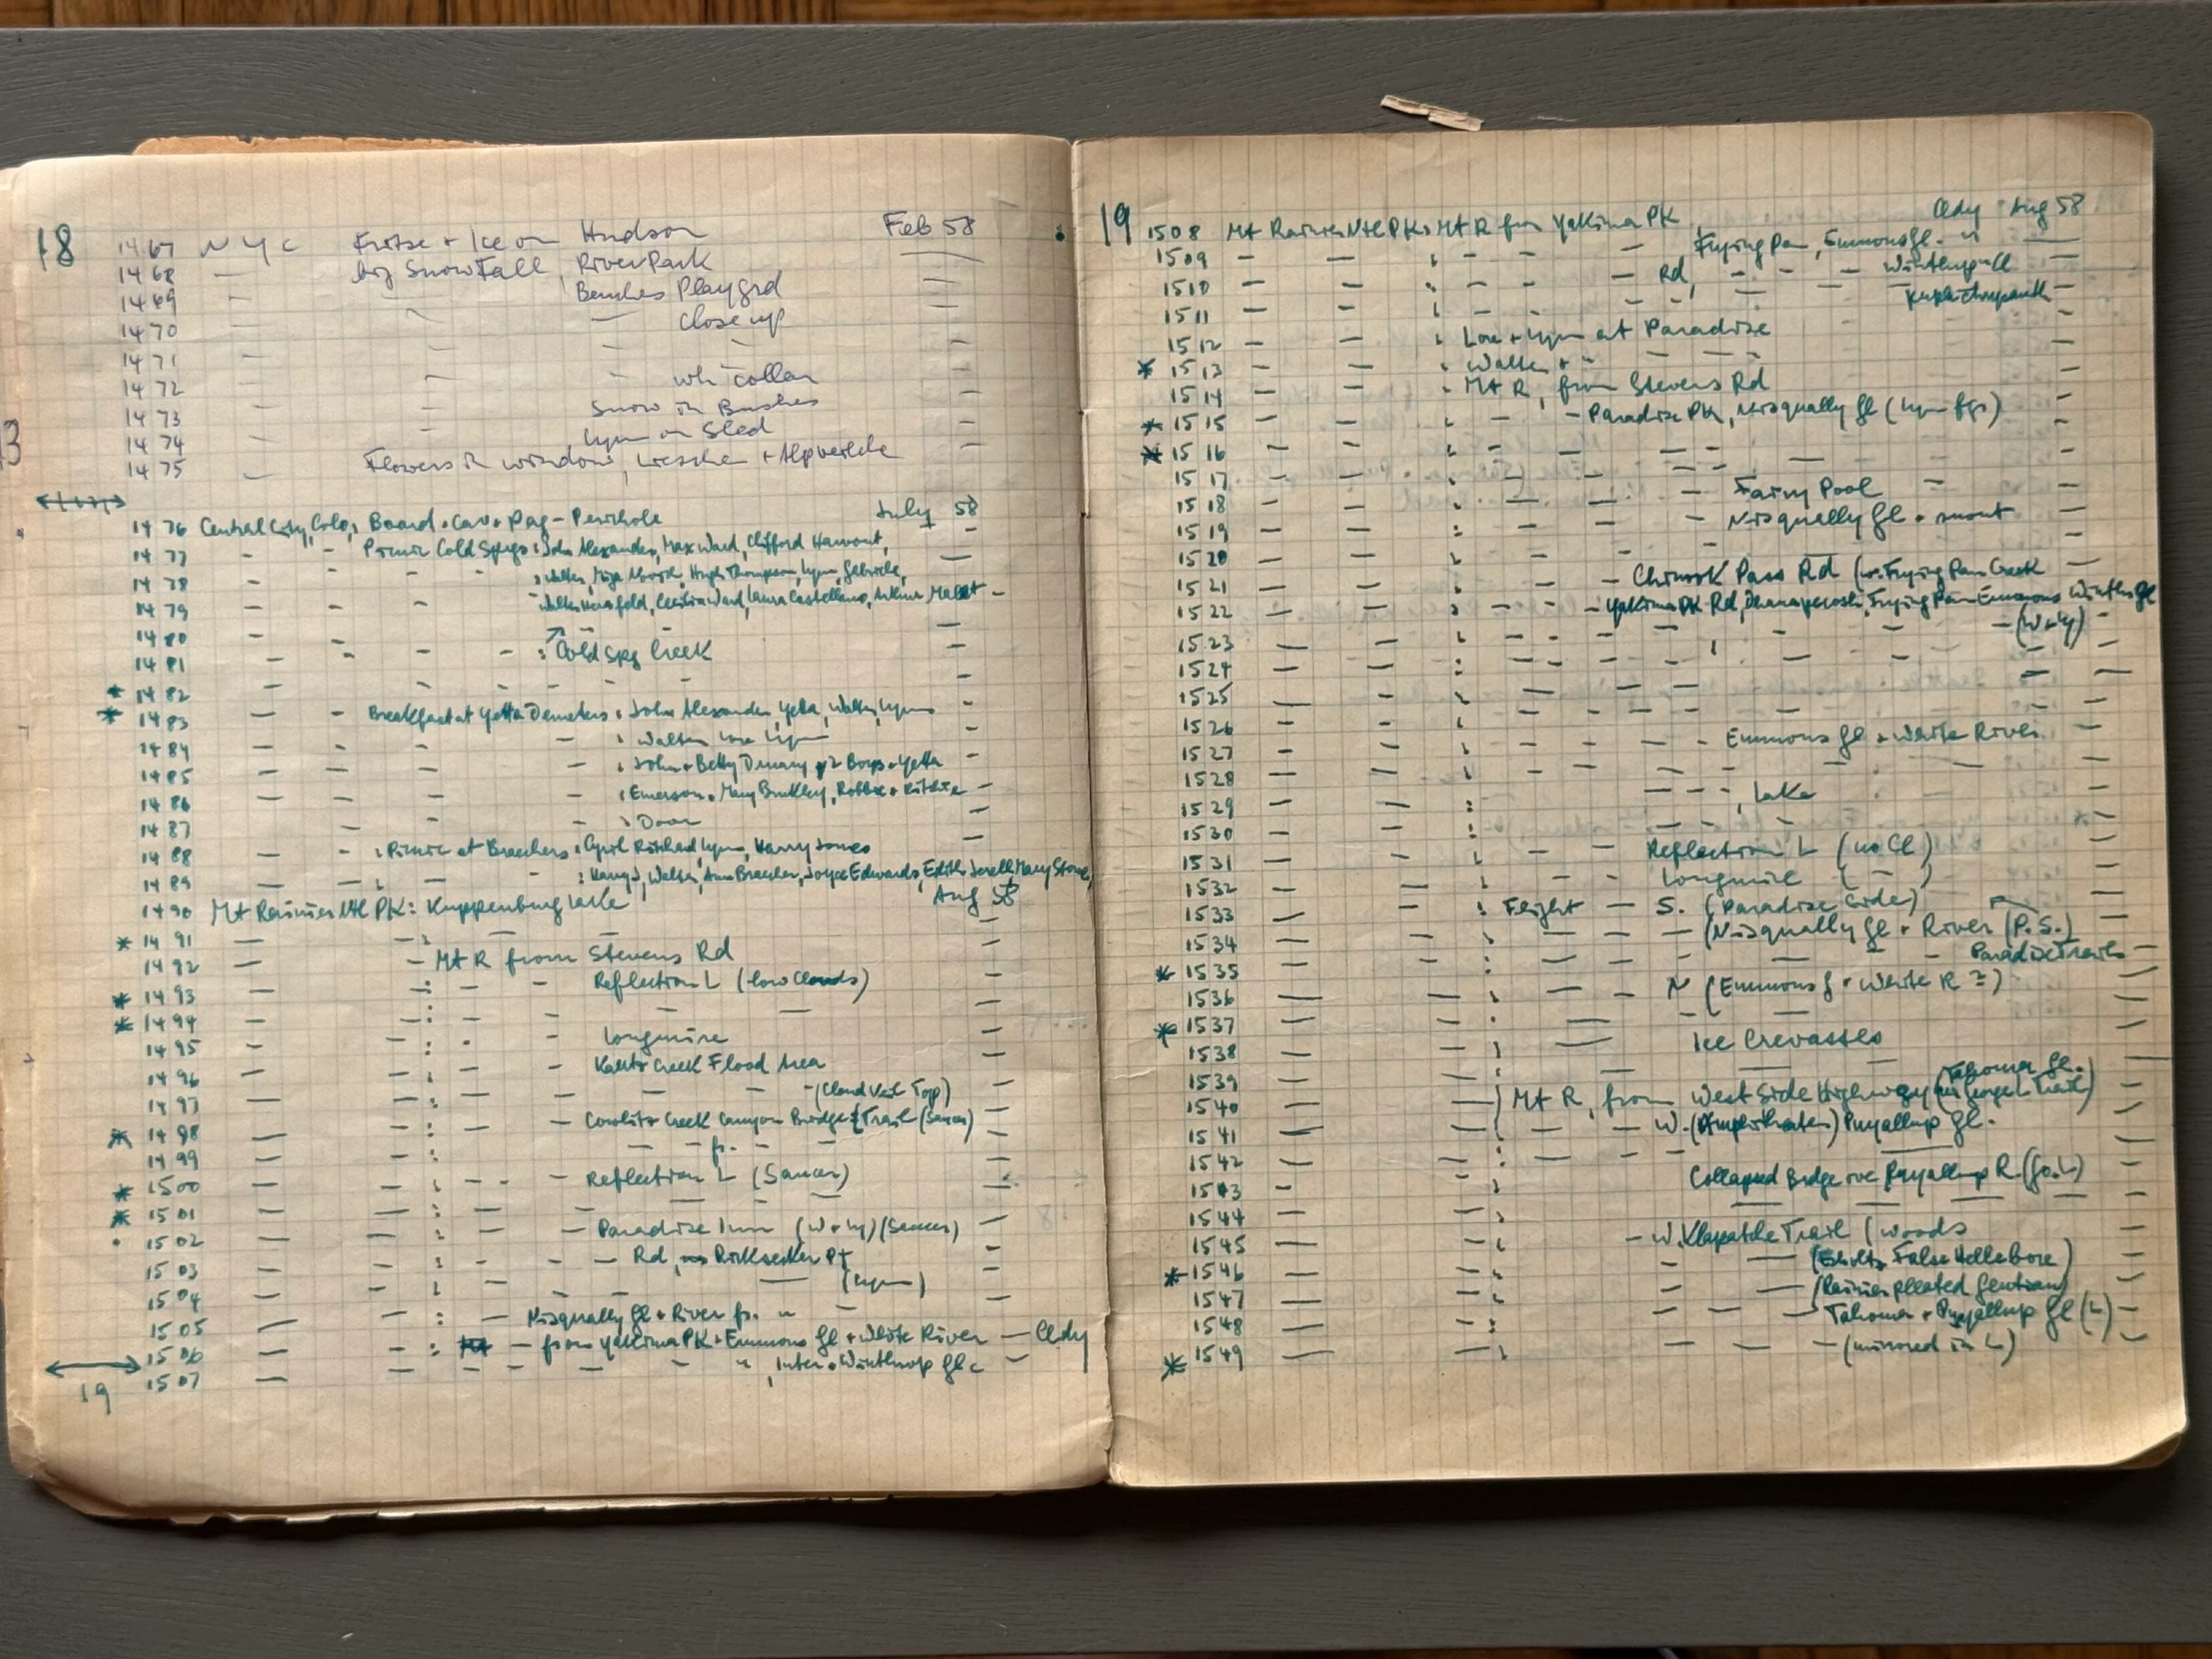 18
1467 N Y C Fritze + Ice on Hudson Feb 58
1468 — big Snowfall, River Park —
1469 — Benches Playgrd —
1470 — — — Close up —
1471 — — — —
1472 — — — wh. collar —
1473 — — Snow in Bushes —
1474 — — , Lynn on Sled —
1475 — Flowers in window, + Alpveilche —
1476 Central City, Colo, Board + Car + Dag - Perichole July 58
1477 — — Picnic Cold Spgs : John Alexander, Max Ward, Clifford Harvout, —
1478 — — — — : Walter, Hugh Thompson, Lynn, Gabriele,
1479 — — — Walter Herefeld, Cecilia Ward, Laura Castellano, Arthur —
1480 — — — —
1481 — — — — : Cold Spg Creek —
* 1482 — — — — — —
* 1483 — — Breakfast at Yetta Demeters : John Alexander, Yetta, Walter, Lynn —
1484 — — — — : Walter Lore Lynn
1485 — — — — : John + Betty + 2 Boys + Yetta
1486 — — — — : Emerson + Mary Buckley, Robbie + Ritchie —
1487 — — — : Door —
1488 — — : Picnic at Breechers : Cyril Ritchard, Lynn, Harry Jones
1489 — — : — — : Harry J, Walter, Ann Breecher, Joyce Edwards, Edith Jerell, Mary Stone,
1490 Mt Rainier Ntl PK : Lake Aug 58
* 1491 — — : —
1492 — — Mt R from Stevens Rd —
* 1493 — : — — Reflection L (low Clouds) —
* 1494 — : — — — — —
1495 — : — — Longmire —
1496 — : — — Kautz Creek Flood Area —
1497 — : — — — (Cloud Veil Top) —
* 1498 — : — — Cowlitz Creek Canyon Bridge & Trail (Saucer) —
1499 — : — fr. — —
* 1500 — : — — Reflection L (Saucer) —
* 1501 — : — — — — —
1502 — : — — Paradise Inn (W + Ly) (Saucer) —
1503 — : — — — Rd, Ricksecker Pt —
1504 — : — — — (Lynn) —
1505 — — : — Nisqually Gl + River fr. " — —
1506 — — : — from Yakima PK + Emmons Gl + White River — Cldy
1507 — — — — — " " , Inter + Winthrop Gl —
19
19 1508 Mt Rainier Ntl PK : Mt R from Yakima PK Cldy Aug 58
1509 — — : — — — Frying Pan, Emmons Gl. " —
1510 — — : — — — Rd, — — — Winthrop Gl —
1511 — — : — — — — —
1512 — — : Lore + Lynn at Paradise —
* 1513 — — : Walter + " — — —
1514 — — : Mt R, from Stevens Rd —
* 1515 — — : — — Paradise PK, Nisqually Gl (Lynn fgr) —
* 1516 — — : — — — — — —
1517 — — : — — — — —
1518 — — : — Fairy Pool — —
1519 — — : — Nisqually Gl + snout —
1520 — — : — — —
1521 — — : — — Chinook Pass Rd (w. Frying Pan Creek —
1522 — — : — — — Yakima PK Rd, Frying Pan Emmons Winthr Gl
1523 — — : — — — — — (W + Ly) —
1524 — — : — — — — —
1525 — — : — — — —
1526 — — : — — — —
1527 — — : — — — Emmons Gl + White River —
1528 — — : — — — — —
1529 — — : — — — , Lake —
1530 — — : — — — —
1531 — — : — — Reflection L (no Cl) —
1532 — — : — — Longmire ( — ) —
1533 — — : Flight — S. (Paradise Side) —
1534 — — : — — — (Nisqually Gl + River (P.S.) —
* 1535 — — : — — — — Paradise Trails —
1536 — — : — — N (Emmons G + White R =) —
* 1537 — — : — — — —
1538 — — : — Ice Crevasses —
1539 — — : — — —
1540 — — : Mt R, from West Side Highway (Tahoma Gl. L Trail) —
1541 — — : — — — W. (Amphitheater) Puyallup Gl. —
1542 — — : — — — — —
1543 — — : Collapsed Bridge ove Puyallup R (Go. L) —
1544 — — : — — — —
1545 — — : — W. Klapatche Trail (woods —
* 1546 — — : — — False Hellebore) —
1547 — — : — — (Rainier pleated Gentian) —
1548 — — : — — — Tahoma + Puyallup Gl (L) —
* 1549 — — : — — — (mirrored in L) —